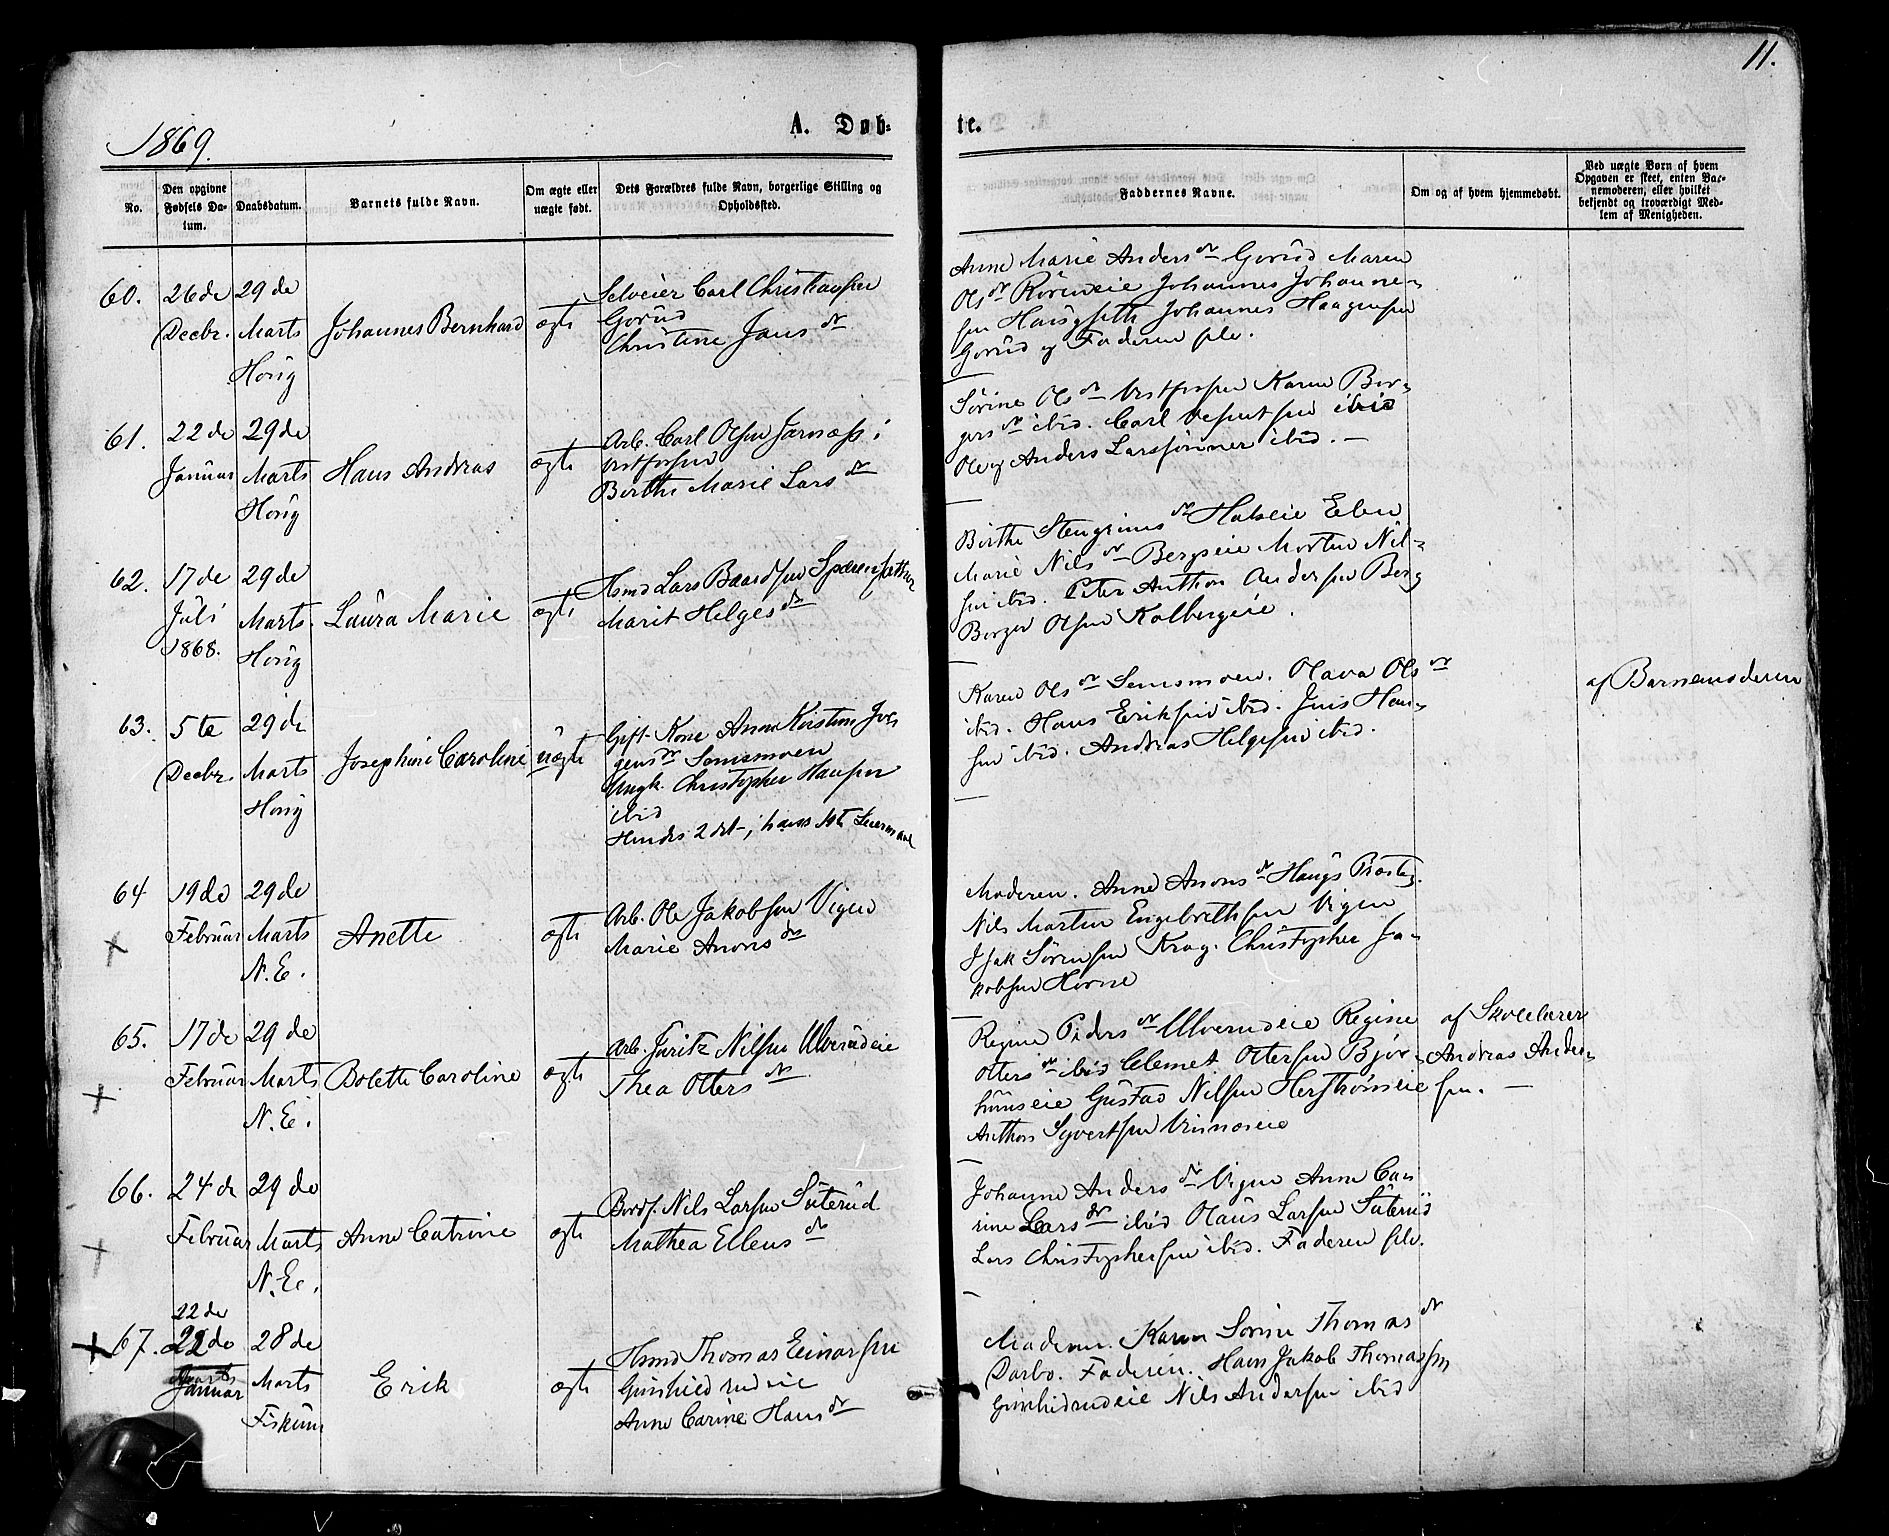 11.
1869.
A. Døb-
te.
No.
Den opgivne Fødsels Da-
tum.
Daabsdatum.
Barnets fulde Navn.
Om ægte eller
uægte født.
Dets Forældres fulde Navn, borgerlige Stilling og
Opholdssted.
Faddernes Navne.
Om og af hvem hjemmedøbt.
Ved uægte Børn af hvem
Opgaven er skeet, enten Bar-
nemoderen, eller hvilket
bekjendt og troværdigt Med-
lem af Menigheden.
60.
26de
Decbr.
29de
Marts
Houg
Johannes Bernhard
ægte
Selveier Carl Christiansen
Gorud
Christine Jans dr
Anne Marie Anders dr Gorud Maren
Ols dr Røreneie Johannes Johanne-
sen Hougseth Johannes Haagensen
Gorud og Faderen selv.
61.
22de
Januar
29de
Marts
Houg
Hans Andreas
ægte
Arb. Carl Olsen Jarnæss i
Vestfossen
Berthe Marie Lars dr
Sørine Ols dr Vestfossen Karen Bor-
gers dr ibid. Carl ibid
Ole og Anders Larssønner ibid. —
62.
17de
Juli
1868.
29de
Marts.
Houg
Laura Marie
ægte
Hmd Lars Baardsen
Marit Helges dr
Berthe Stengrims dr Halseie Elen
Marie Nils dr Bergseie Morten Nil-
sen ibid. Peter Anthon Andersen Berg
Borger Olsen Kolbergeie.
63.
5te
Decbr.
29de
Marts
Houg
Josephine Caroline
uægte
Gift Kone Anne Kirstine Jør
gens dr Semsmoen
Ungk. Christopher Hansen
ibid
Hendes 2det, hans 1ste Leiermaal
Karen Ols dr Semsmoen. Olava Ols dr
ibid. Hans Eriksen ibid. Jens Han-
sen ibid. Andreas Helgesen ibid.
af Barnemoderen
64
19de
Februar
29de
Marts
N.E.
Anette
ægte
Arb. Ole Jakobsen Vigen
Marie Arons dr
Moderen. Anne Arons dr Hougs Præsteg.
Nils Martin Engebrethsen Vigen
Isak Sørensen Krag. Christopher Ja-
kobsen Horne
65.
17de
Februar
29de
Marts
N.E.
Bolette Caroline
ægte
Arb. Juritz Nilsen Ulverudeie
Thea Otters dr
Regine Peders dr Ulverudeie Regine
Otters dr ibid Clemet Ottersen Bjør-
Gustad Nilsen Herstrømseie
Anthon Syvertsen
af Skolelærer
Andreas Ander-
sen. —
66.
24de
Februar
29de
Marts
N.E.
Anne Catrine
ægte
Nils Larsen Suterud
Mathea Ellens dr
Johanne Anders dr Vigen Anne Ca-
rine Lars dr ibid Olaus Larsen Suterud
Lars Christophersen ibid. Faderen selv.
67.
22de
22de
Januar
28de
Marts
Fiskum
Erik
ægte
Hmd Thomas Einarsen
Gunhildrudeie
Anne Carine Hans dr
Moderen. Karen Sørine Thomas dr
Darbo. Faderen. Hans Jakob Thomassen
Gunhildrudeie Nils Andersen ibid